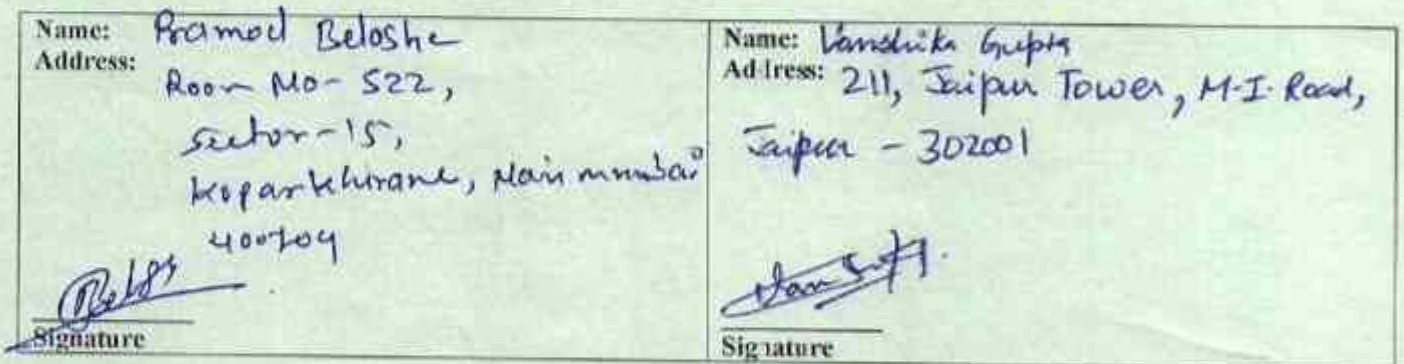 Name: Pramod Beloshe
Address:
Room No- 522,
Sector-15,
Koparkhirane, Navi mumbai
400709
Signature
Name: Vanshika Gupta
Address: 211, Jaipur Tower, M.I. Road,
Jaipur - 302001
Signature